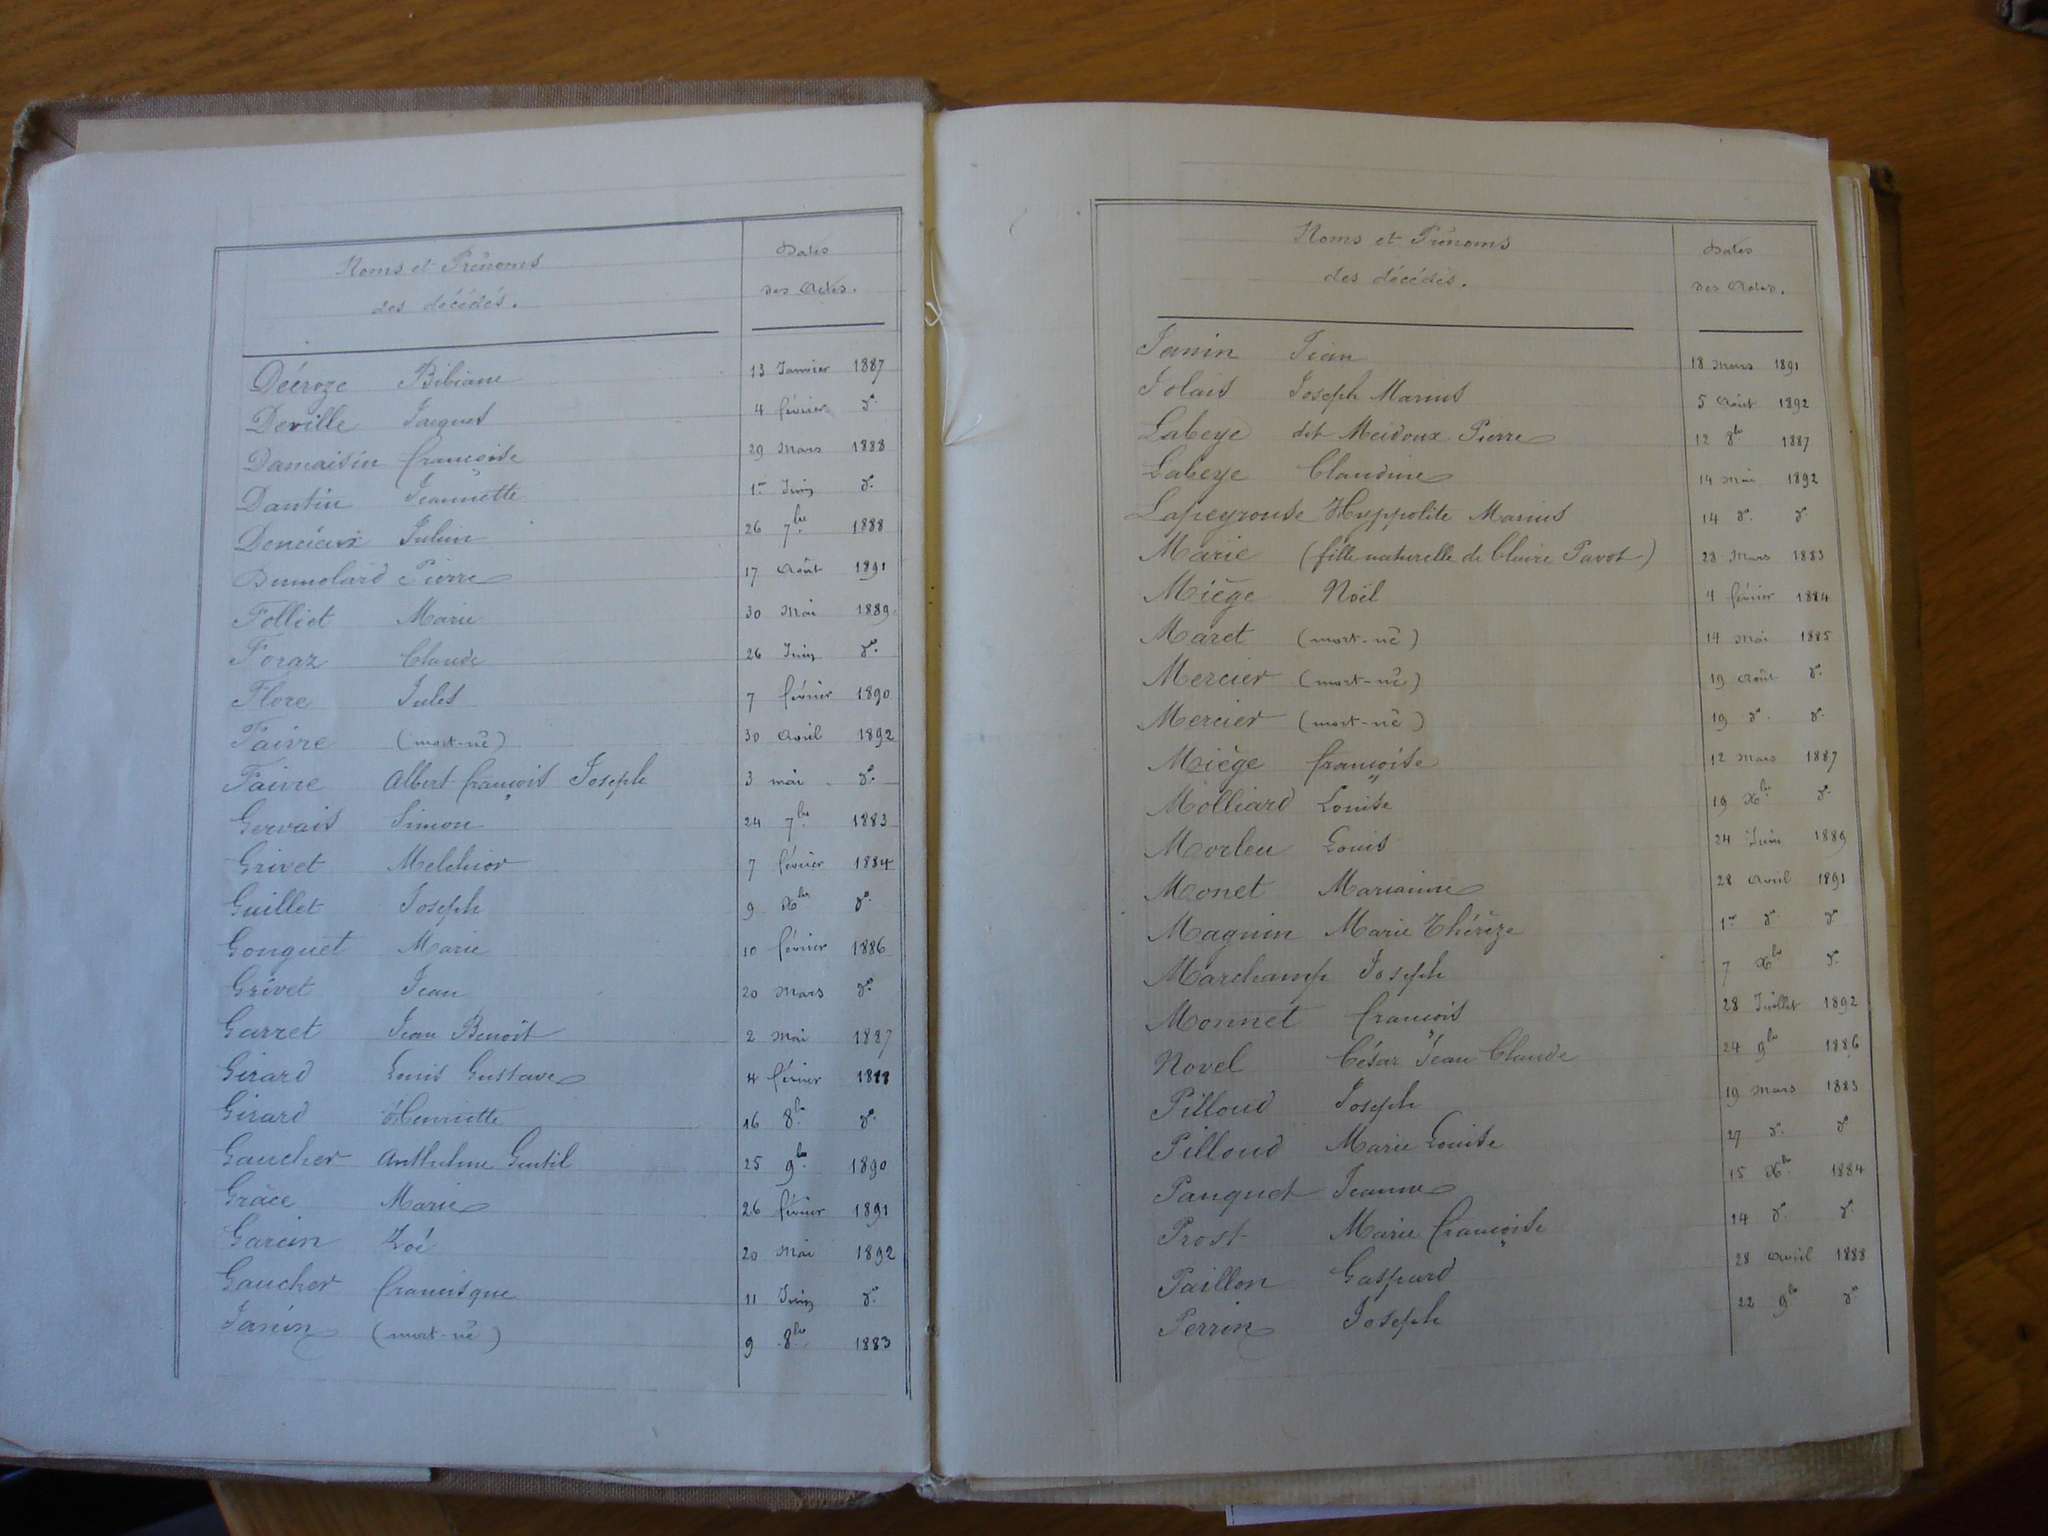 Noms et Prénoms
des décédés.
Dates
des Actes.
Décroze Bibiane 13 Janvier 1887
Deville Jacques 4 février do.
Damaisin françoise 29 Mars 1888
Dantin Jeannette 1er Juin do.
Julien 26 7bre 1888
Dumolard Pierre 17 Août 1891
Folliet Marie 30 Mai 1889
Foraz Claude 26 Juin do.
Flore Jules 7 février 1890
Faivre (mort-né) 30 Avril 1892
Faivre Albert françois Joseph 3 mai do.
Gervais Simon 24 7bre 1883
Grivet Melchior 7 février 1884
Guillet Joseph 9 Xbre do.
Gonguet Marie 10 février 1886
Grivet Jean 20 Mars do.
Garret Jean Benoit 2 Mai 1887
Girard Louis Gustave 4 février 1888
Girard Henriette 16 8bre do.
Gaucher Anthelme Gentil 25 9bre 1890
Grâce Marie 26 février 1891
Garcin Zoé 20 Mai 1892
Gaucher francisque 11 Juin do.
Janin (mort-né) 9 8bre 1883
Noms et Prénoms
des décédés.
Dates
des Actes.
Janin Jean 18 Mars 1891
Jolais Joseph Marius 5 Août 1892
Labeye dit Meidoux Pierre 12 8bre 1887
Labeye Claudine 14 Mai 1892
Lapeyrouse Hyppolite Marius 14 do. do
Marie (fille naturelle de Claire Pavot) 28 Mars 1883
Miège Noël 4 février 1884
Maret (mort-né) 14 Mai 1885
Mercier (mort-né) 19 Août do.
Mercier (mort-né) 19 do. do.
Miège françoise 12 Mars 1887
Molliard Louise 19 Xbre do.
Morleu Louis 24 Juin 1889
Monet Marianne 28 Avril 1891
Magnin Marie Thérèze 1er do. do
Marchamp Joseph 7 Xbre do.
Monnet françois 28 Juillet 1892
Novel César Jean Claude 24 9bre 1886
Pilloud Joseph 19 Mars 1883
Pilloud Marie Louise 27 do. do
Panquet Jeanne 15 Xbre 1884
Prost Marie françoise 14 do. do.
Paillon Gaspard 28 Avril 1888
Perrin Joseph 22 9bre do